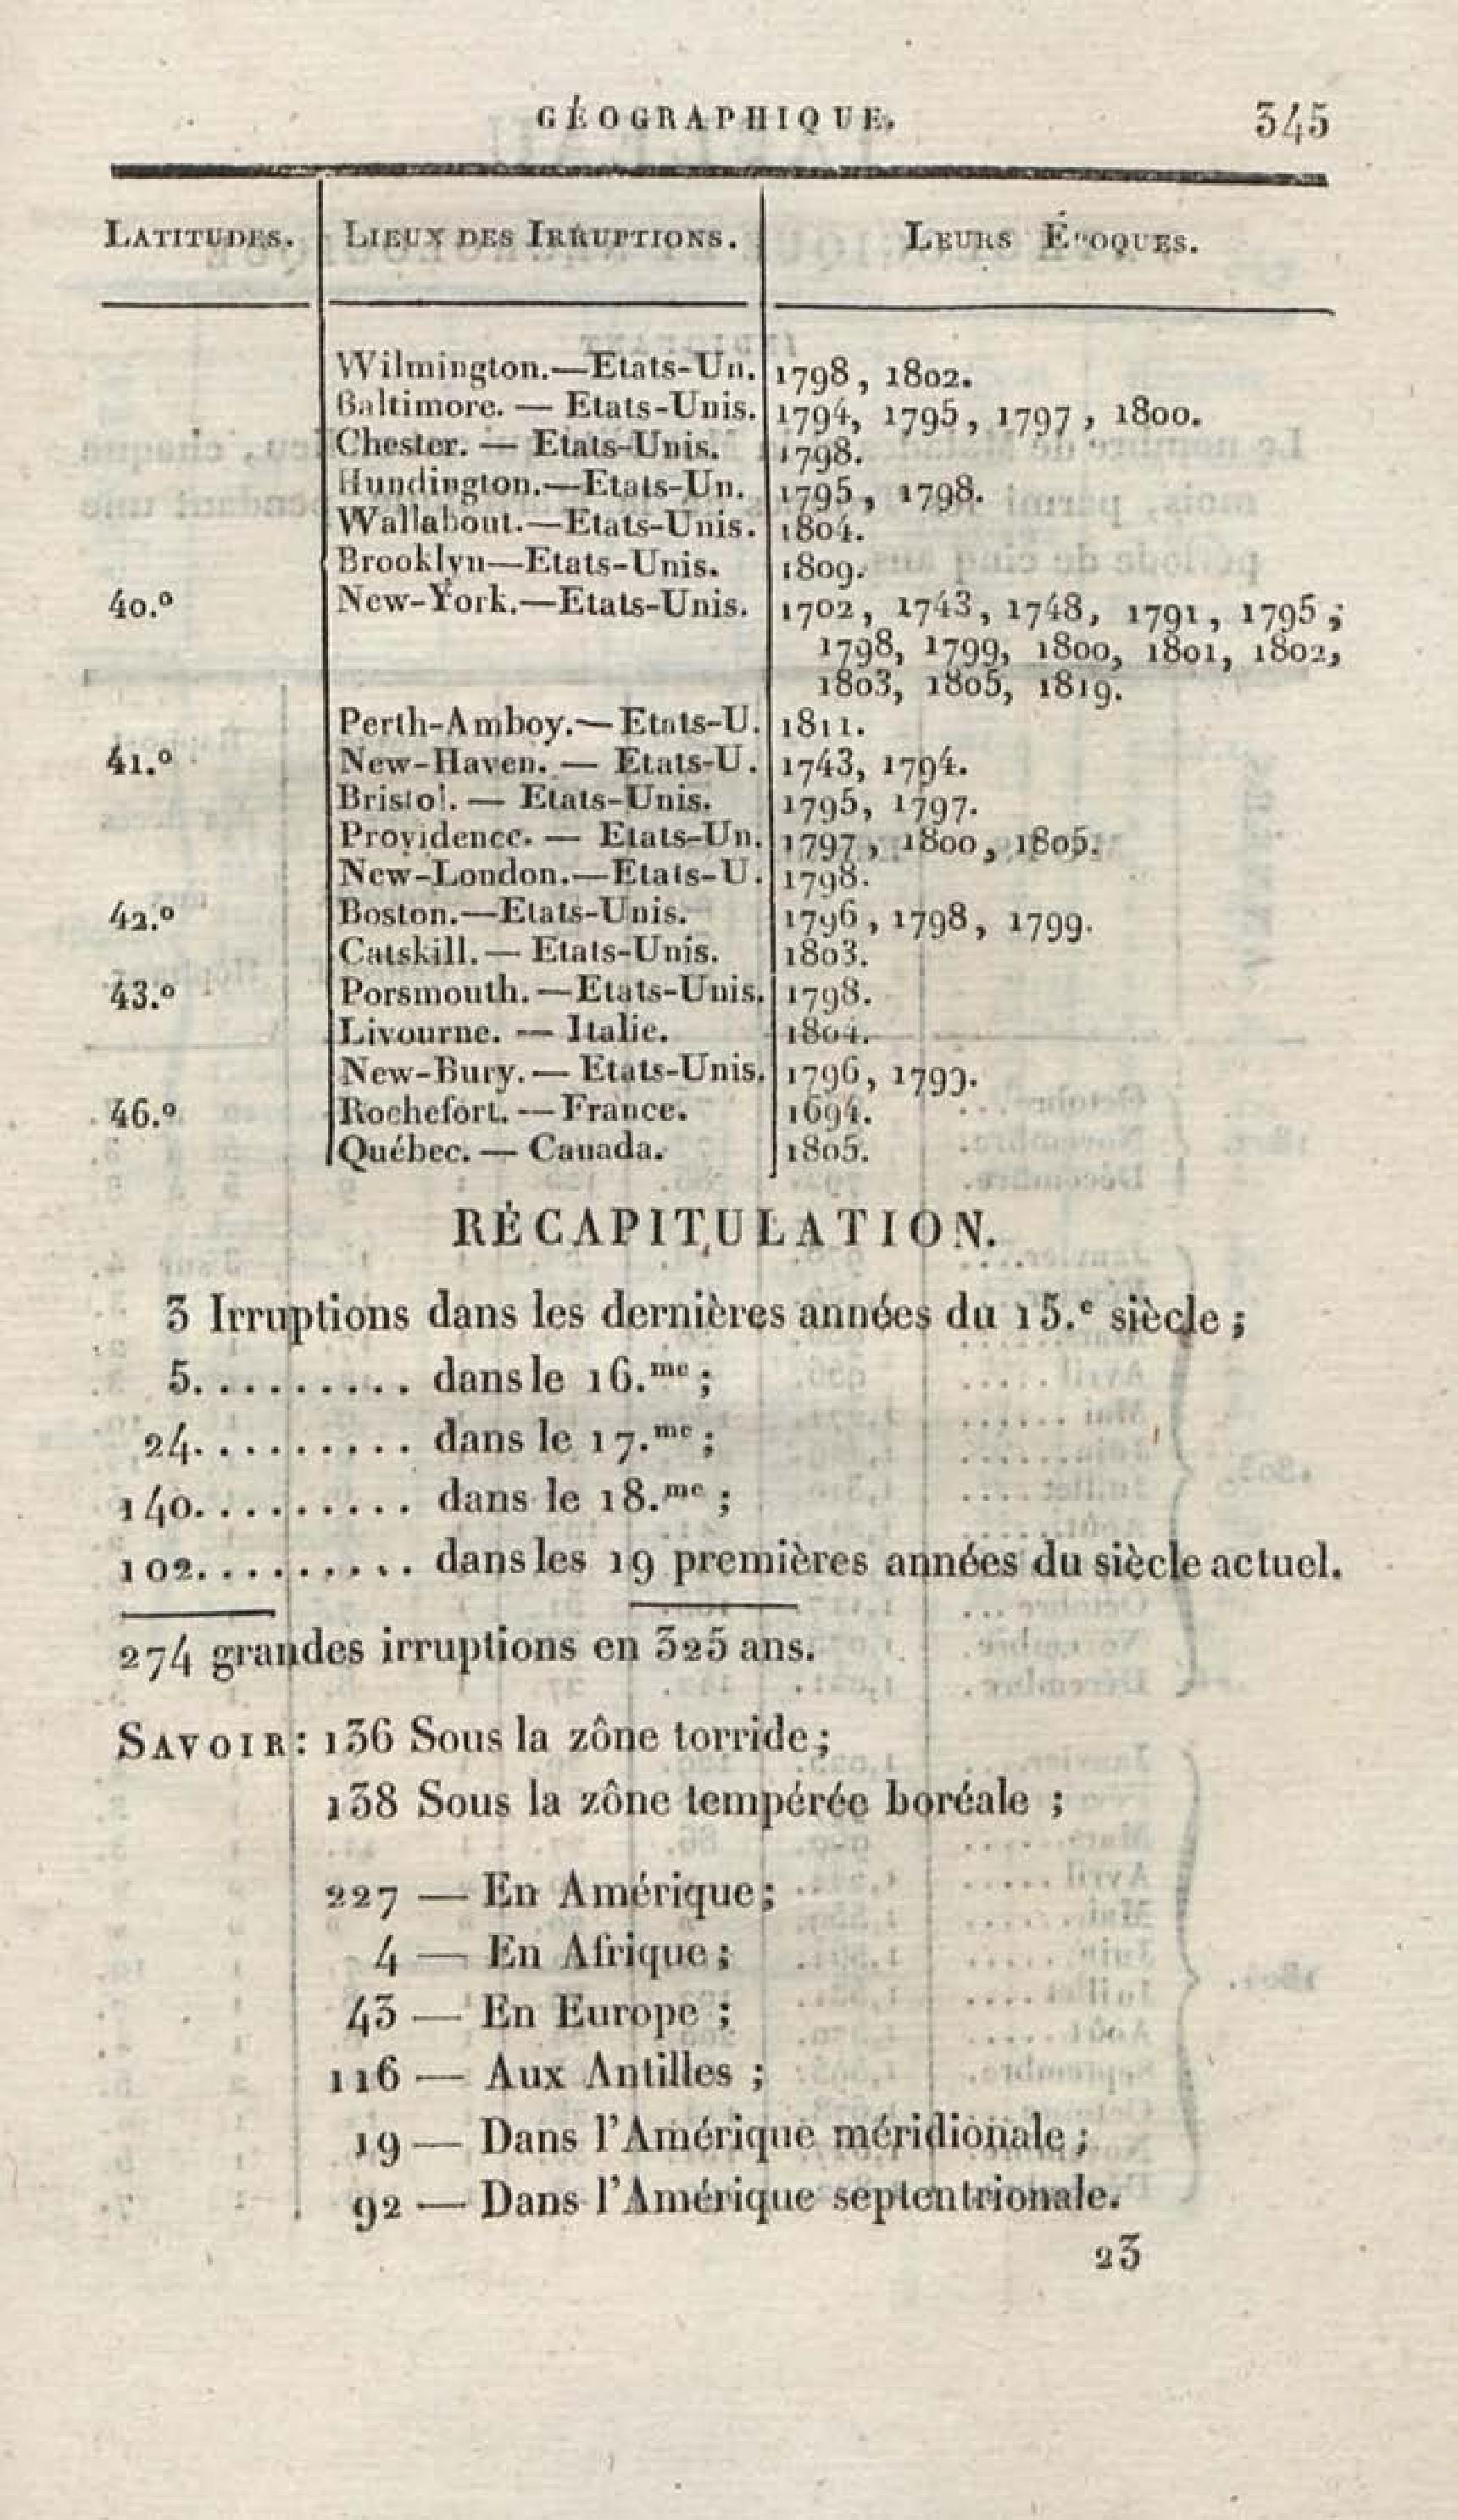 GÉOGRAPHIQUE. 345
LATITUDES. LIEUX DES IRRUPTIONS. LEURS ÉPOQUES.
Wilmington.—Etats-Un. 1798, 1802.
Baltimore. — Etats-Unis. 1794, 1795, 1797, 1800.
Chester. — Etats-Unis. 1798.
Hundington.—Etats-Un. 1795, 1798.
Wallabout.—Etats-Unis. 1804.
Brooklyn—Etats-Unis. 1809.
40.º New-York.—Etats-Unis. 1702, 1743, 1748, 1791, 1795;
1798, 1799, 1800, 1801, 1802,
1803, 1805, 1819.
Perth-Amboy.—Etats-U. 1811.
41.º New-Haven. — Etats-U. 1743, 1794.
Bristol. — Etats-Unis. 1795, 1797.
Providence. — Etats-Un. 1797, 1800, 1805.
New-London.—Etats-U. 1798.
42.º Boston.—Etats-Unis. 1796, 1798, 1799.
Catskill.— Etats-Unis. 1803.
43.º Porsmouth.—Etats-Unis. 1798.
Livourne. — Italie. 1804.
New-Bury.— Etats-Unis. 1796, 1799.
46.º Rochefort. — France. 1694.
Québec. — Canada. 1805.
RÉCAPITULATION.
3 Irruptions dans les dernières années du 15.e siècle;
5.......... dans le 16.me;
24.......... dans le 17.me;
140.......... dans le 18.me;
102.......... dans les 19 premières années du siècle actuel.
274 grandes irruptions en 325 ans.
SAVOIR: 136 Sous la zône torride;
138 Sous la zône tempérée boréale;
227 — En Amérique;
4 — En Afrique;
43 — En Europe;
116 — Aux Antilles;
19 — Dans l'Amérique méridionale;
92 — Dans l'Amérique septentrionale.
23